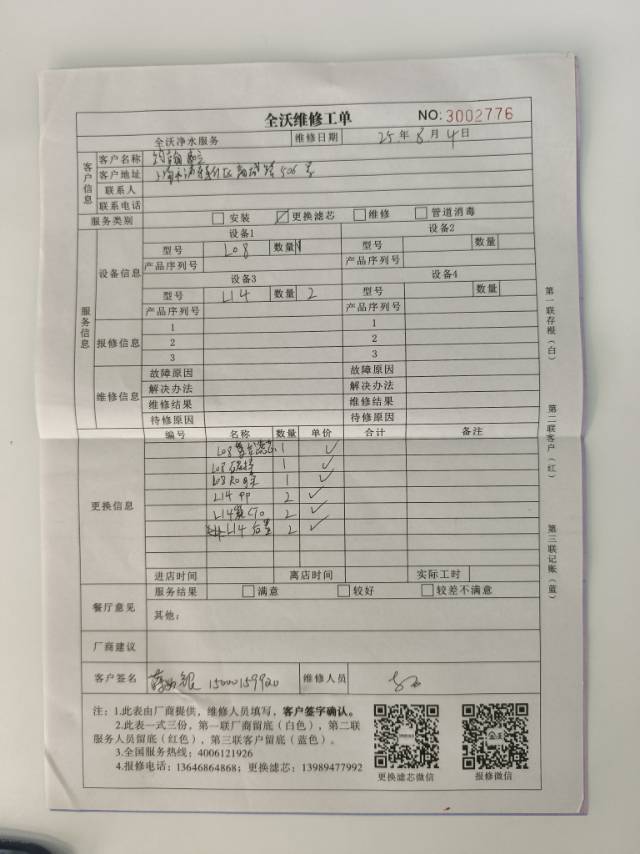 全沃维修工单 NO: 3002776
全沃净水服务 维修日期 25年8月4日
客户信息
客户名称
客户地址 506号
联系人
联系电话
服务类别 安装 更换滤芯 维修 管道消毒
服务信息
设备信息
设备1 设备2
型号 L08 数量 1 型号 数量
产品序列号 产品序列号
设备3 设备4
型号 L14 数量 2 型号 数量
产品序列号 产品序列号
报修信息
1 1
2 2
3 3
维修信息
故障原因 故障原因
解决办法 解决办法
维修结果 维修结果
待修原因 待修原因
更换信息
编号 名称 数量 单价 合计 备注
L08 1 ✓
L08 1 ✓
L08 RO 1 ✓
L14 PP 2 ✓
L14 CTO 2 ✓
L14 后置 2 ✓
进店时间 离店时间 实际工时
餐厅意见
服务结果 满意 较好 较差不满意
其他:
厂商建议
客户签名 15000159920 维修人员
注：1.此表由厂商提供，维修人员填写，客户签字确认。
2.此表一式三份，第一联厂商留底（白色），第二联
服务人员留底（红色），第三联客户留底（蓝色）。
3.全国服务热线：4006121926
4.报修电话：13646864868；更换滤芯：13989477992
更换滤芯微信 报修微信
第一联存根（白）
第二联客户（红）
第三联记账（蓝）